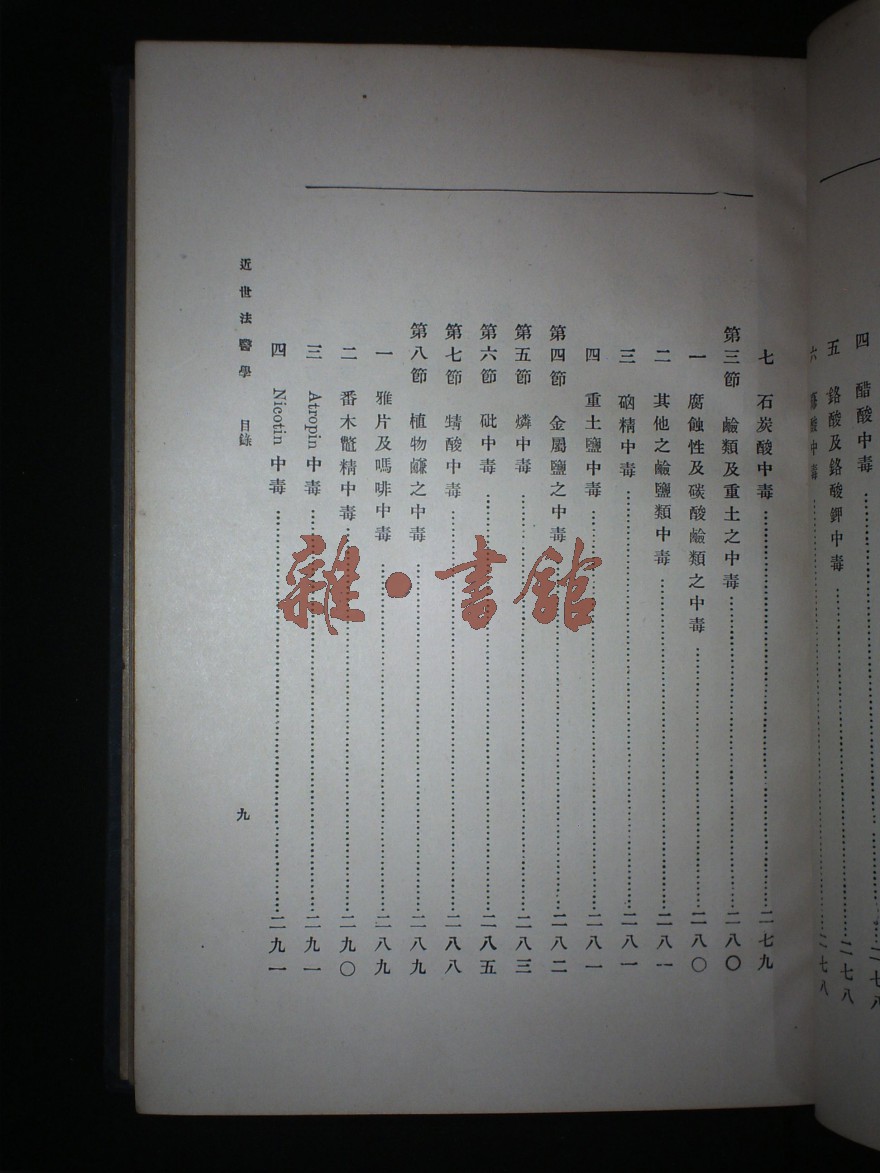 四 醋酸中毒……二七八
五 鉻酸及鉻酸鉀中毒……二七八
六 酸中毒……二七八
七 石炭酸中毒……二七九
第三節 鹼類及重土之中毒……二八〇
一 腐蝕性及碳酸鹼類之中毒……二八〇
二 其他之鹼鹽類中毒……二八一
三 硇精中毒……二八一
四 重土鹽中毒……二八一
第四節 金屬鹽之中毒……二八二
第五節 燐中毒……二八三
第六節 砒中毒……二八五
第七節 蜻酸中毒……二八八
第八節 植物鹻之中毒……二八九
一 雅片及嗎啡中毒……二八九
二 番木鼈精中毒……二九〇
三 Atropin 中毒……二九一
四 Nicotin 中毒……二九一
近世法醫學 目錄 九
雜·書館